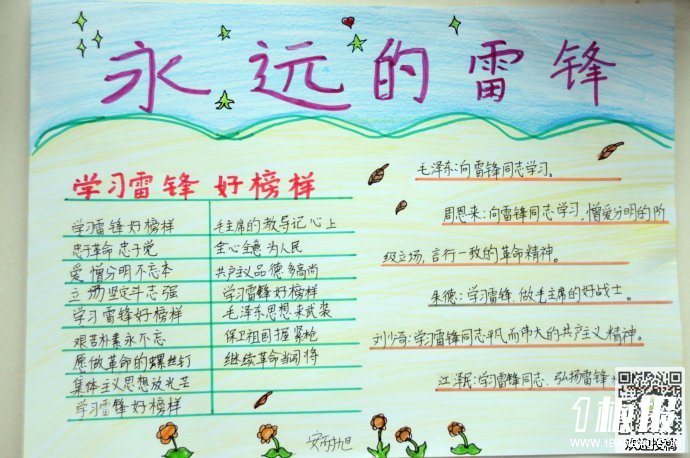 永远的雷锋
学习雷锋 好榜样
学习雷锋好榜样
忠于革命 忠于党
爱憎分明不忘本
立场坚定斗志强
学习雷锋好榜样
艰苦朴素永不忘
愿做革命的螺丝钉
集体主义思想放光芒
学习雷锋好榜样
毛主席的教导记心上
全心全意为人民
共产主义品德多高尚
学习雷锋好榜样
毛泽东思想来武装
保卫祖国握紧枪
继续革命当闯将
毛泽东:向雷锋同志学习。
周恩来:向雷锋同志学习,憎爱分明的阶
级立场,言行一致的革命精神。
朱德:学习雷锋,做毛主席的好战士。
刘少奇:学习雷锋同志平凡而伟大的共产主义精神。
江泽民:学习雷锋同志、弘扬雷锋
欢迎投稿